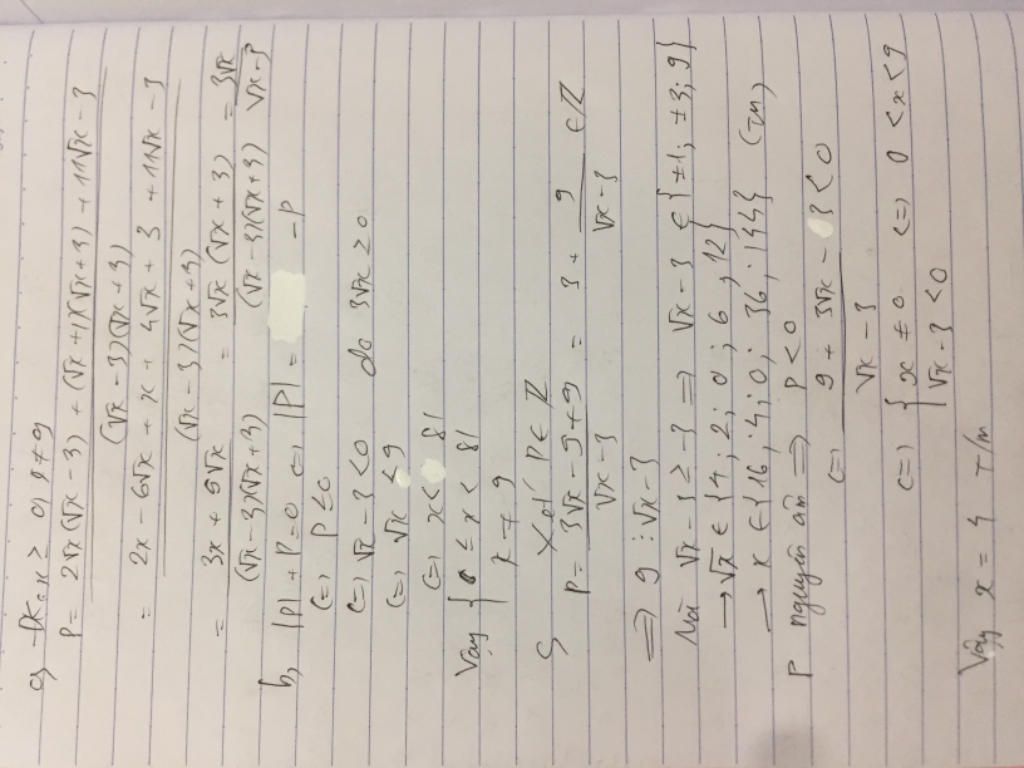 a, ĐK: x ≥ 0, x ≠ 9
P = 2√x(√x - 3) + (√x + 1)(√x + 3) + 11√x - 3
(√x - 3)(√x + 3)
= 2x - 6√x + x + 4√x + 3 + 11√x - 3
(√x - 3)(√x + 3)
= 3x + 5√x = 3√x (√x + 3) = 3√x
(√x - 3)(√x + 3) (√x - 3)(√x + 3) √x - 3
b, |P| + P = 0 <=> |P| = - P
<=> P ≤ 0
<=> √x - 3 < 0 do 3√x ≥ 0
<=> √x ≤ 9
<=> x < 81
Vậy { 0 ≤ x < 81
x ≠ 9
c, Xét P ∈ Z
P = 3√x - 9 + 9 = 3 + 9 ∈ Z
√x - 3 √x - 3
=> 9 ⋮ √x - 3
Mà √x - 3 ≥ -3 => √x - 3 ∈ { ±1; ±3; 9 }
→ √x ∈ { 4; 2; 0; 6; 12 }
→ x ∈ { 16; 4; 0; 36; 144 } (TM)
P nguyên âm => P < 0
<=> 9 + 3√x - 3 < 0
√x - 3
<=> { x ≠ 0 <=> 0 < x < 9
√x - 3 < 0
Vậy x = 4 T/m